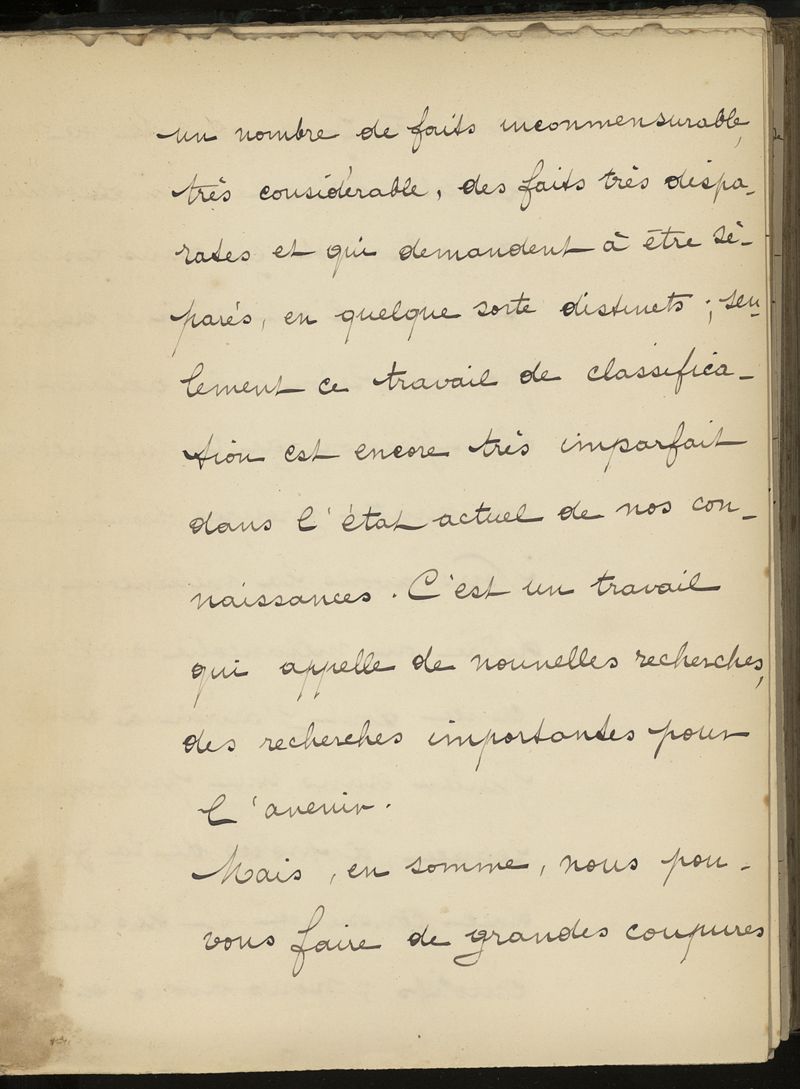 un nombre de faits inconmensurable,
très considérable, des faits très dispa-
rates et qui demandent à être sé-
parés, en quelque sorte distincts ; seu-
lement ce travail de classifica-
tion est encore très imparfait
dans l'état actuel de nos con-
naissances. C'est un travail
qui appelle de nouvelles recherches,
des recherches importantes pour
l'avenir.
Mais, en somme, nous pou-
vons faire de grandes coupures